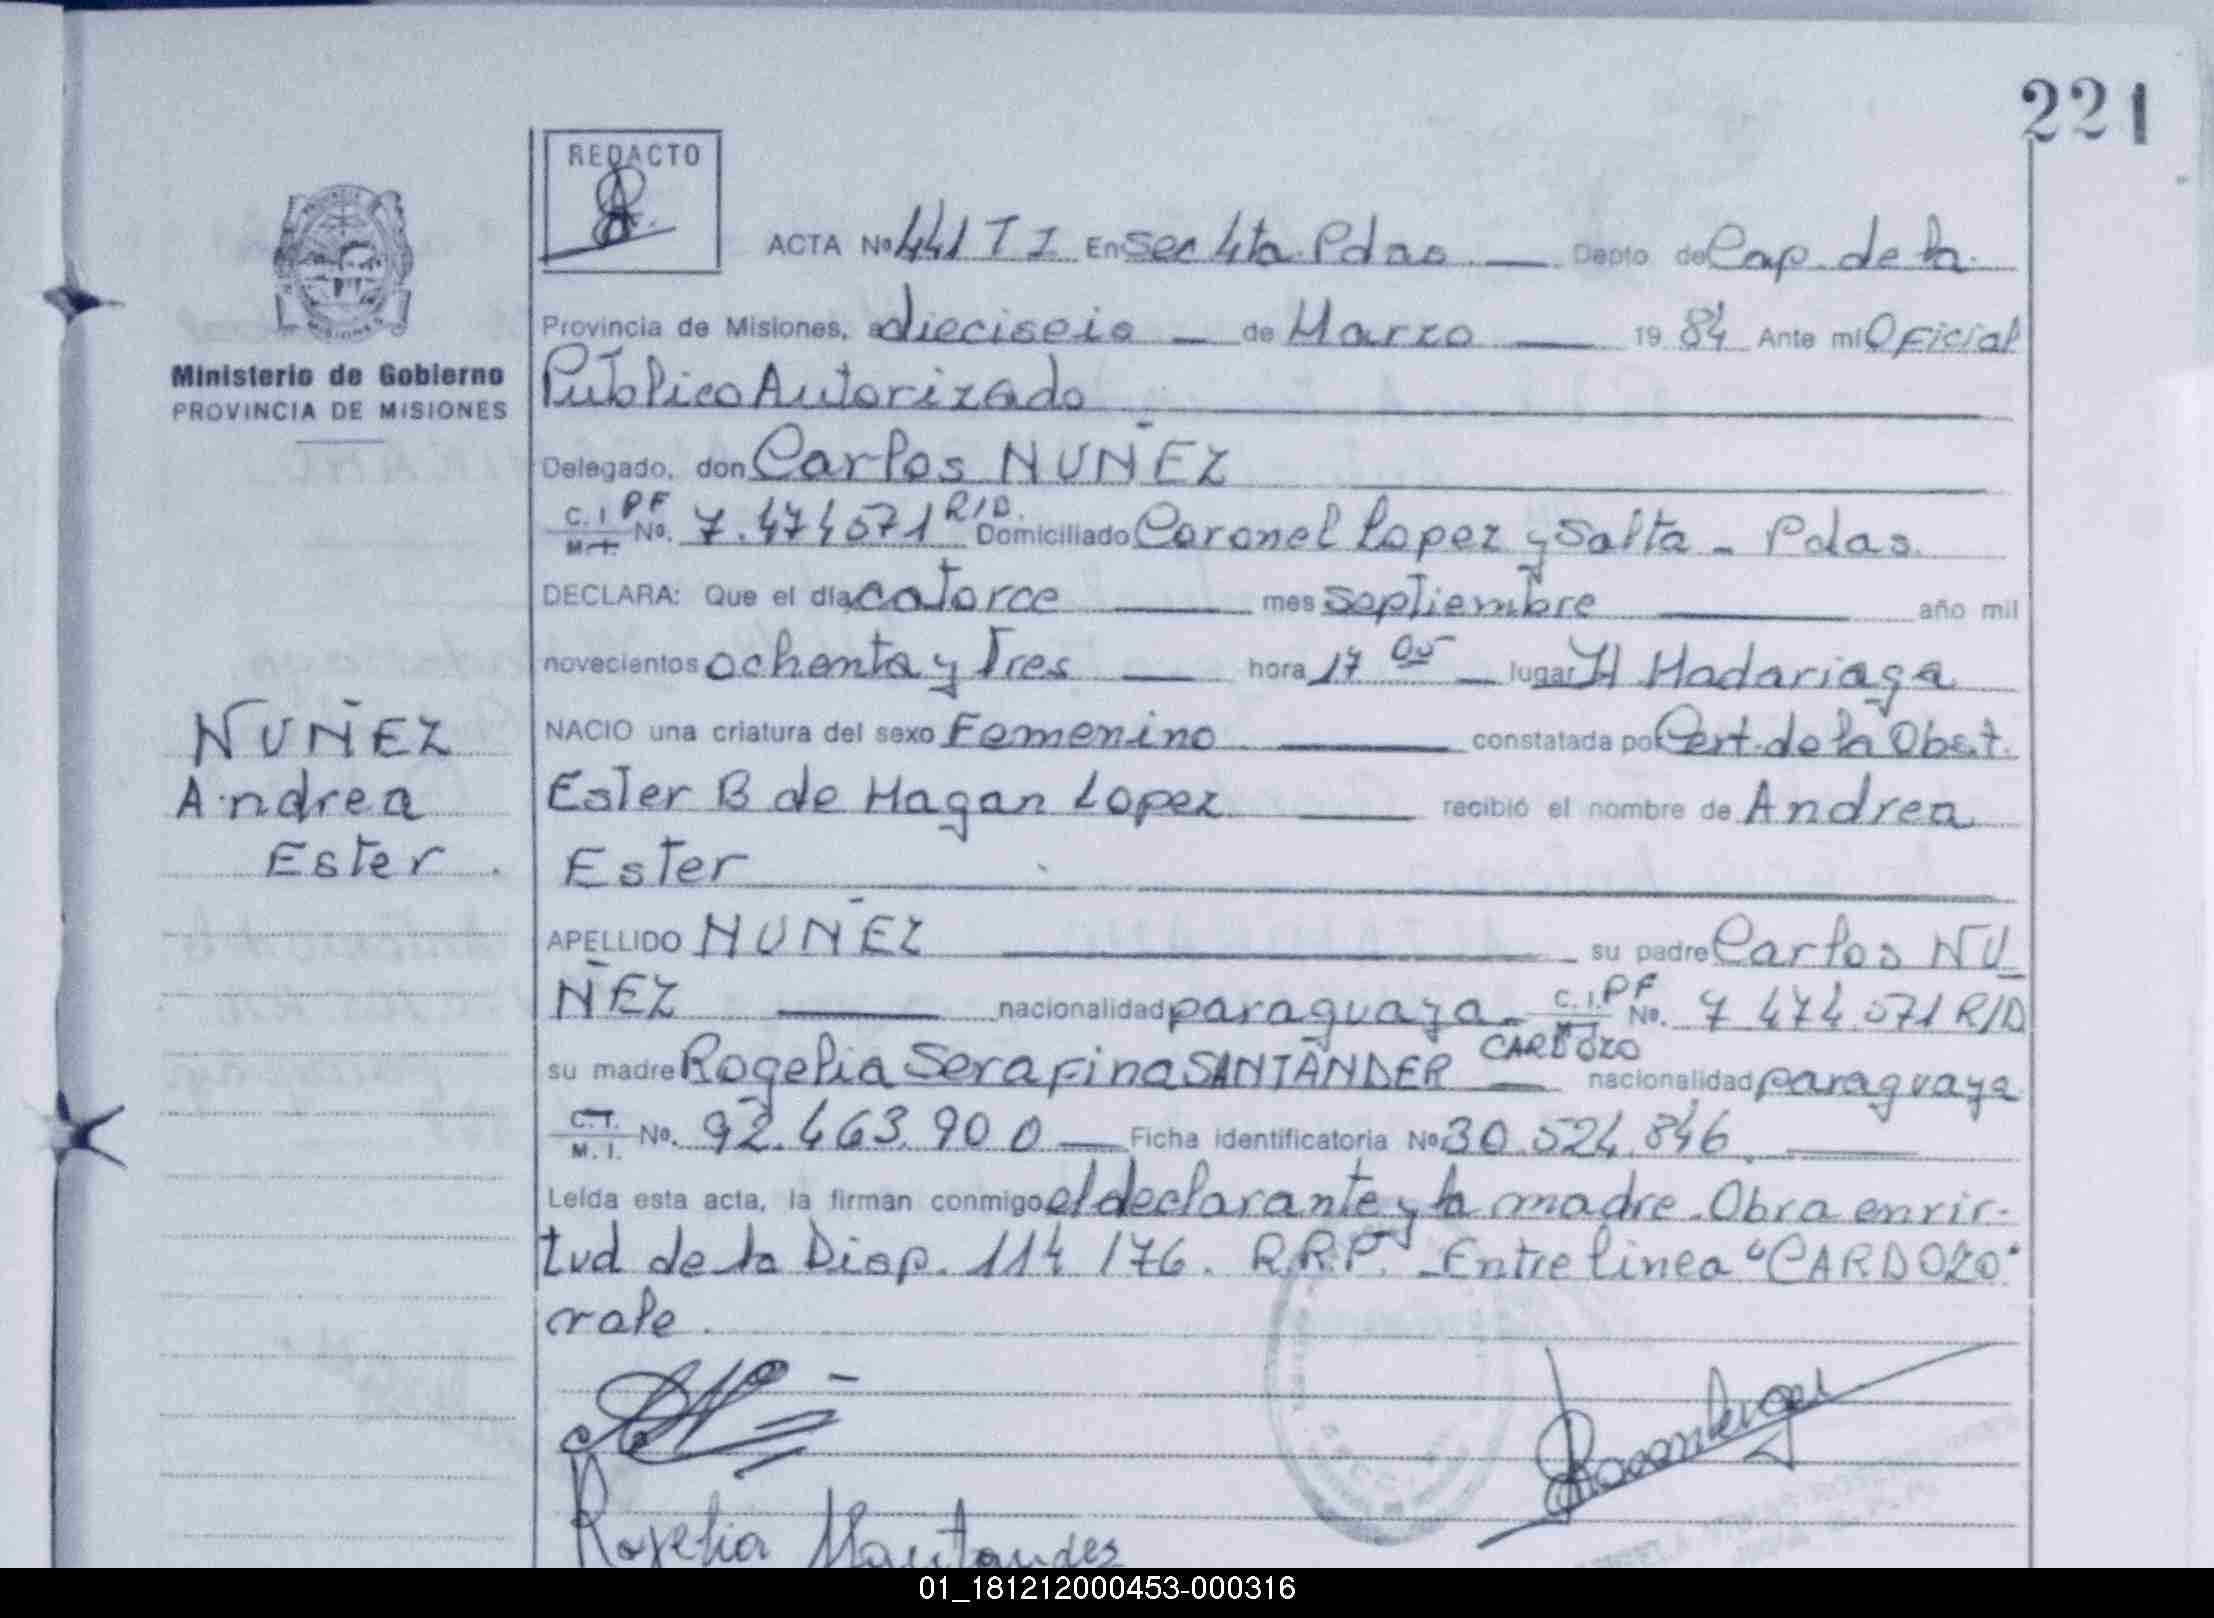 221
REDACTO
ACTA No 441 T I En Sec 4ta. Pdas. Depto de Cap. de la
Provincia de Misiones, a dieciseis de Marzo 19 84 Ante mi Oficial
Público Autorizado
Delegado, don Carlos NUÑEZ
C. I. PF
M. I. No. 7.474571 R/D. Domiciliado Coronel Lopez y Salta - Pdas.
DECLARA: Que el día catorce mes septiembre año mil
novecientos ochenta y Tres hora 17 05 lugar H Madariaga
NACIO una criatura del sexo Femenino constatada por Cert. de la Obst.
Ester B de Hagan Lopez recibió el nombre de Andrea
Ester
APELLIDO NUÑEZ su padre Carlos NU
ÑEZ nacionalidad paraguaya C. I. PF No. 7 474.571 R/D
CARDOZO
su madre Rogelia Serafina SANTANDER nacionalidad paraguaya
C. I.
M. I. No. 92.463.900 Ficha identificatoria No 30.524.846.
Leída esta acta, la firman conmigo el declarante y la madre. Obra en vir-
tud de la Disp. 114 /76. R.R.P. Entre linea "CARDOZO"
vale.
Rogelia
Ministerio de Gobierno
PROVINCIA DE MISIONES
NUÑEZ
Andrea
Ester.
01_181212000453-000316